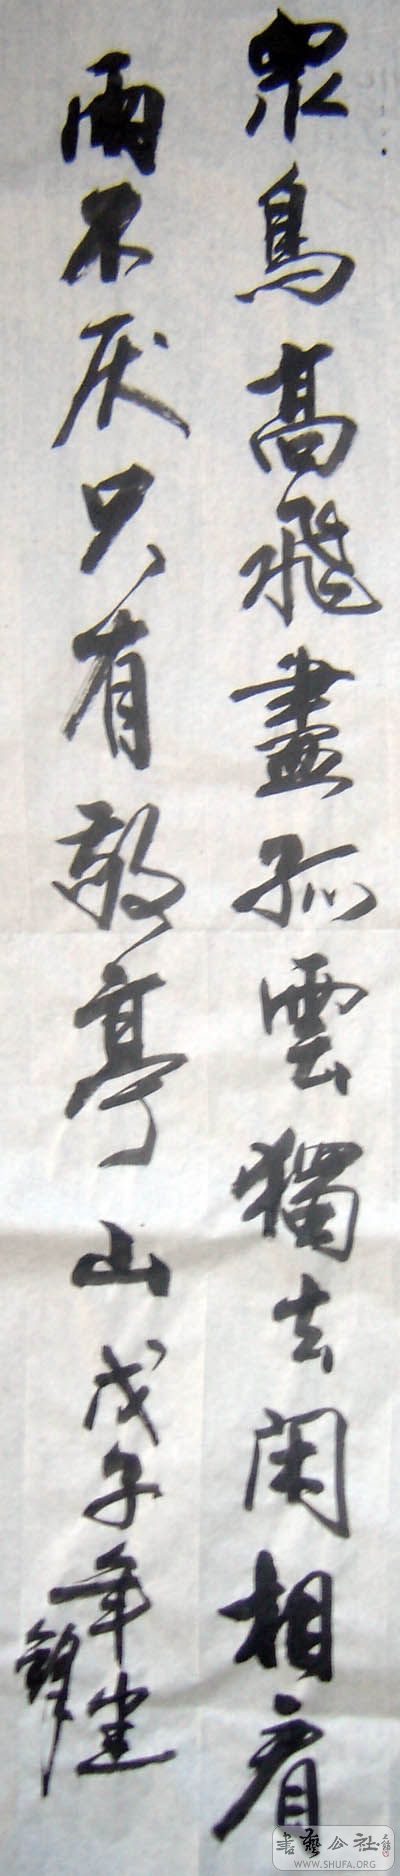 眾鳥高飛盡孤雲獨去閑相看
兩不厌只有敬亭山戊子年建
鋒
書藝公社
WWW.SHUFA.ORG